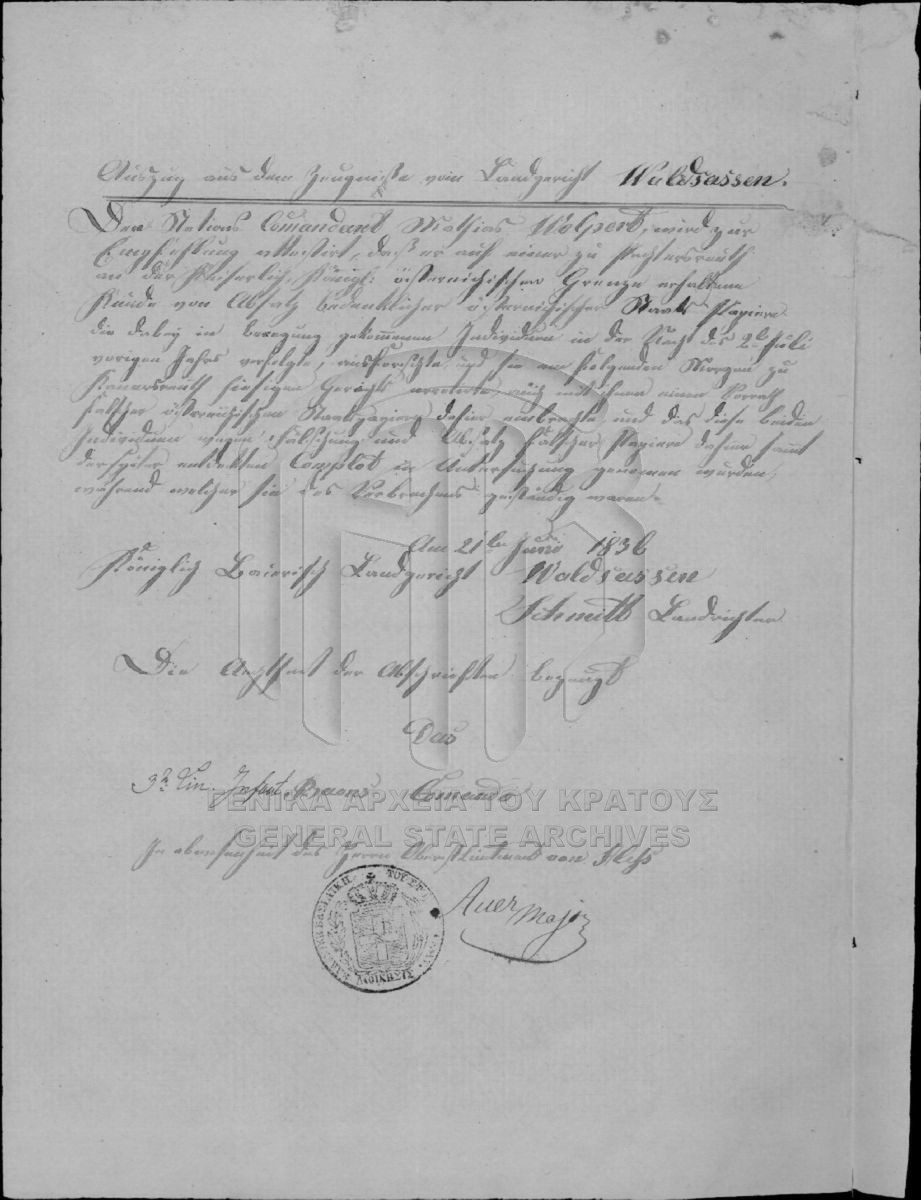 Auszug aus dem Zeugnisse vom Landgericht Waldsassen.
Der Stations Comandant Mathias Wolpert, wird zur
Empfehlung attestirt, daß er auf einer zu
an der Kaiserlich Königl: österreichischen Grenze erhaltene
Kunde von Absatz bedenklicher österreichischer Staats Papiere
die dabey in bewegung gekommenen Individuen in der Nacht des 2t Juli
vorigen Jahrs verfolgte, ausforschte, und sie am folgenden Morgen zu
hiesigen Gerichts arretirte, auch mit ihnen einen Vorrath
falscher österreichischen Staatspapiere dahier einbrachte und das diese beiden
Individuen wegen Fälschung und Absatz falscher Papiere dahier samt
der später entdekten Complot in Untersuchung genomen wurden,
während welcher sie des Verbrechens geständig waren.
Am 21ten Juni 1836
Königlich Baierisch Landgericht Waldsassen
Schmidt Landrichter
Die Aechtheit der Abschriften bezeugt
Das
3te Lin. Infant Baons Comando
In abwesenheit des Herrn Oberstlieutnant von
Auer Major
ΓΕΝΙΚΑ ΑΡΧΕΙΑ ΤΟΥ ΚΡΑΤΟΥΣ
GENERAL STATE ARCHIVES